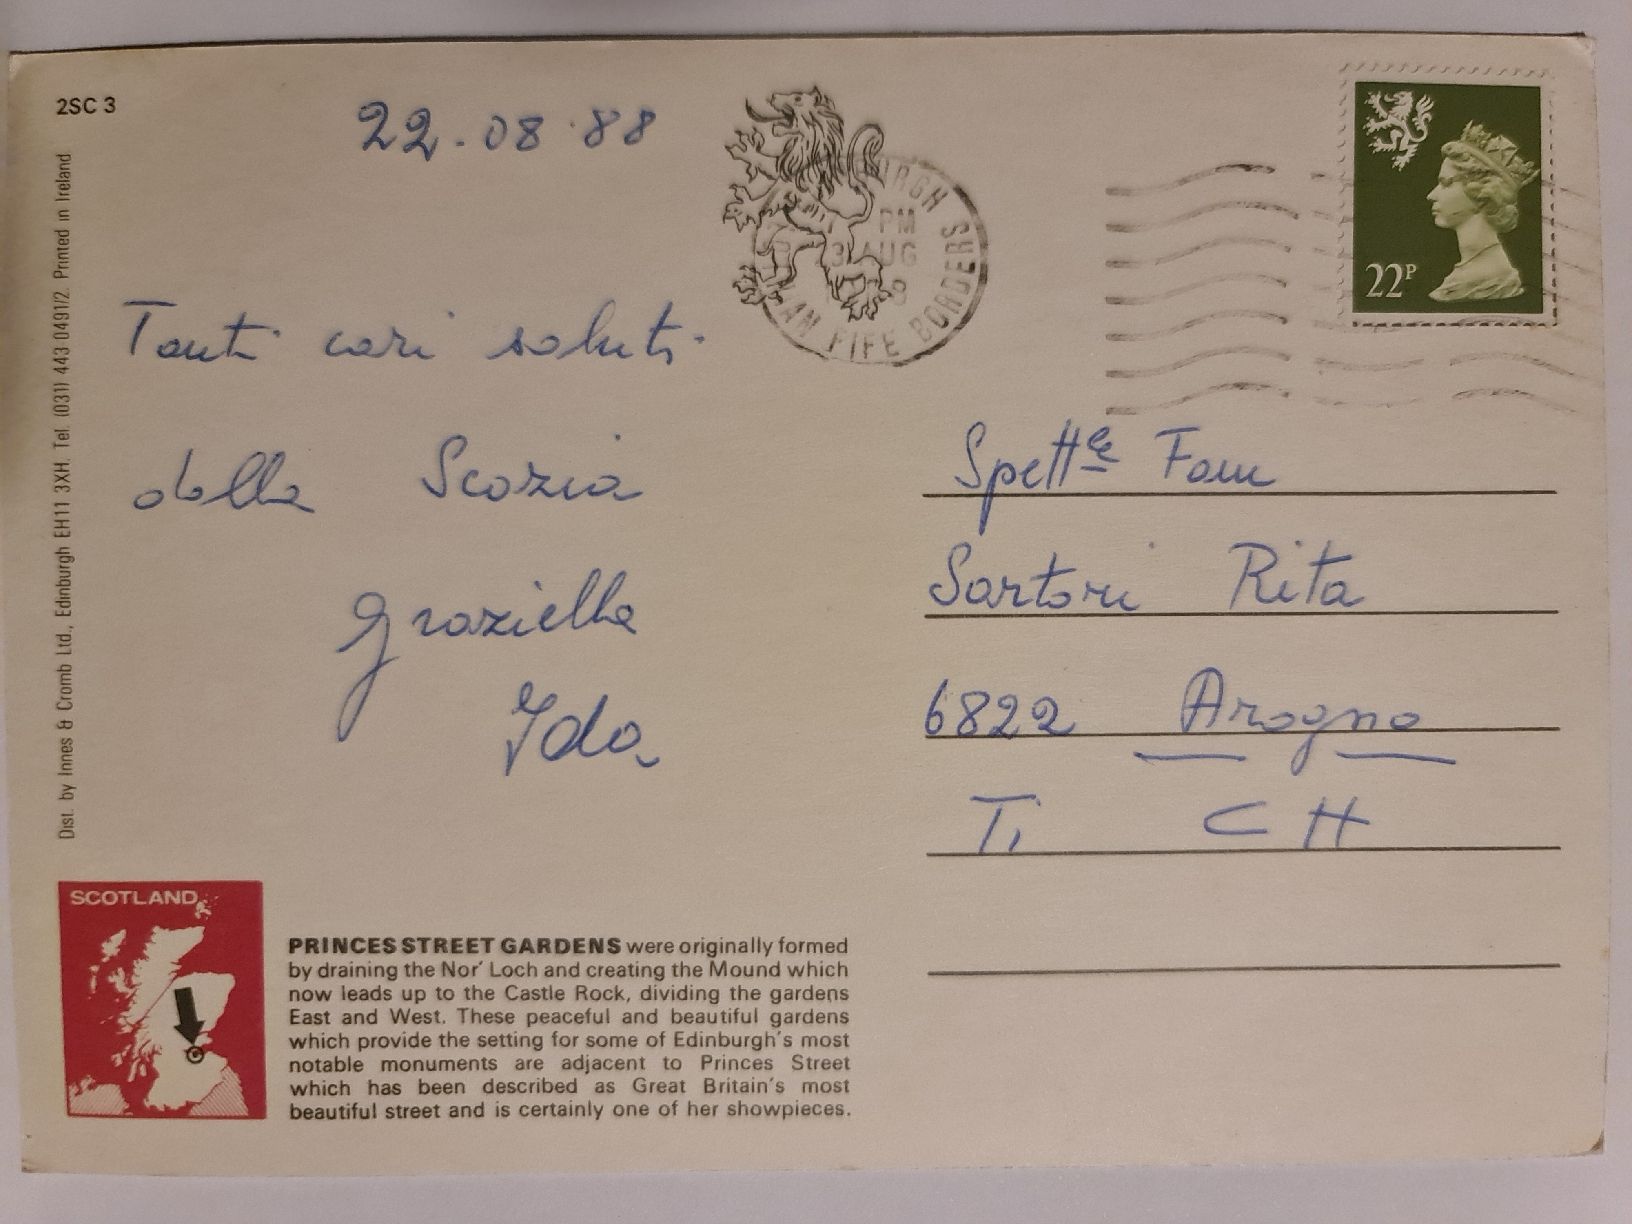 2SC 3
22-08-88
Tanti cari saluti
dalla Scozia
Graziella
Ida
Dist. by Innes & Cromb Ltd., Edinburgh EH11 3XH. Tel. (031) 443 0491/2. Printed in Ireland
PM
AUG
FIFE BORDERS
22P
Spett.le Fam
Sartori Rita
6822 Arogno
Ti CH
SCOTLAND
PRINCES STREET GARDENS were originally formed
by draining the Nor' Loch and creating the Mound which
now leads up to the Castle Rock, dividing the gardens
East and West. These peaceful and beautiful gardens
which provide the setting for some of Edinburgh's most
notable monuments are adjacent to Princes Street
which has been described as Great Britain's most
beautiful street and is certainly one of her showpieces.